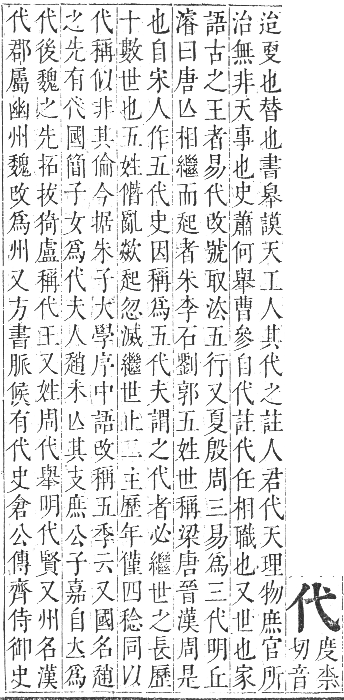 代
度柰
切音
迨更也替也書皋謨天工人其代之註人君代天理物庶官所
治無非天事也史蕭何舉曹參自代註代任相職也又世也家
語古之王者易代改號取法五行又夏殷周三易爲三代明丘
濬曰唐亾相繼而起者朱李石劉郭五姓世稱梁唐晉漢周是
也自宋人作五代史因稱爲五代夫謂之代者必繼世之長歷
十數世也五姓僭亂歘起忽滅繼世止二主歷年僅四稔同以
代稱似非其倫今据朱子大學序中語改稱五季云又國名趙
之先有代國簡子女爲代夫人趙未亾其支庶公子嘉自立爲
代後魏之先拓拔猗盧稱代王又姓周代舉明代賢又州名漢
代郡屬幽州魏改爲州又方書脈候有代史倉公傳齊侍御史